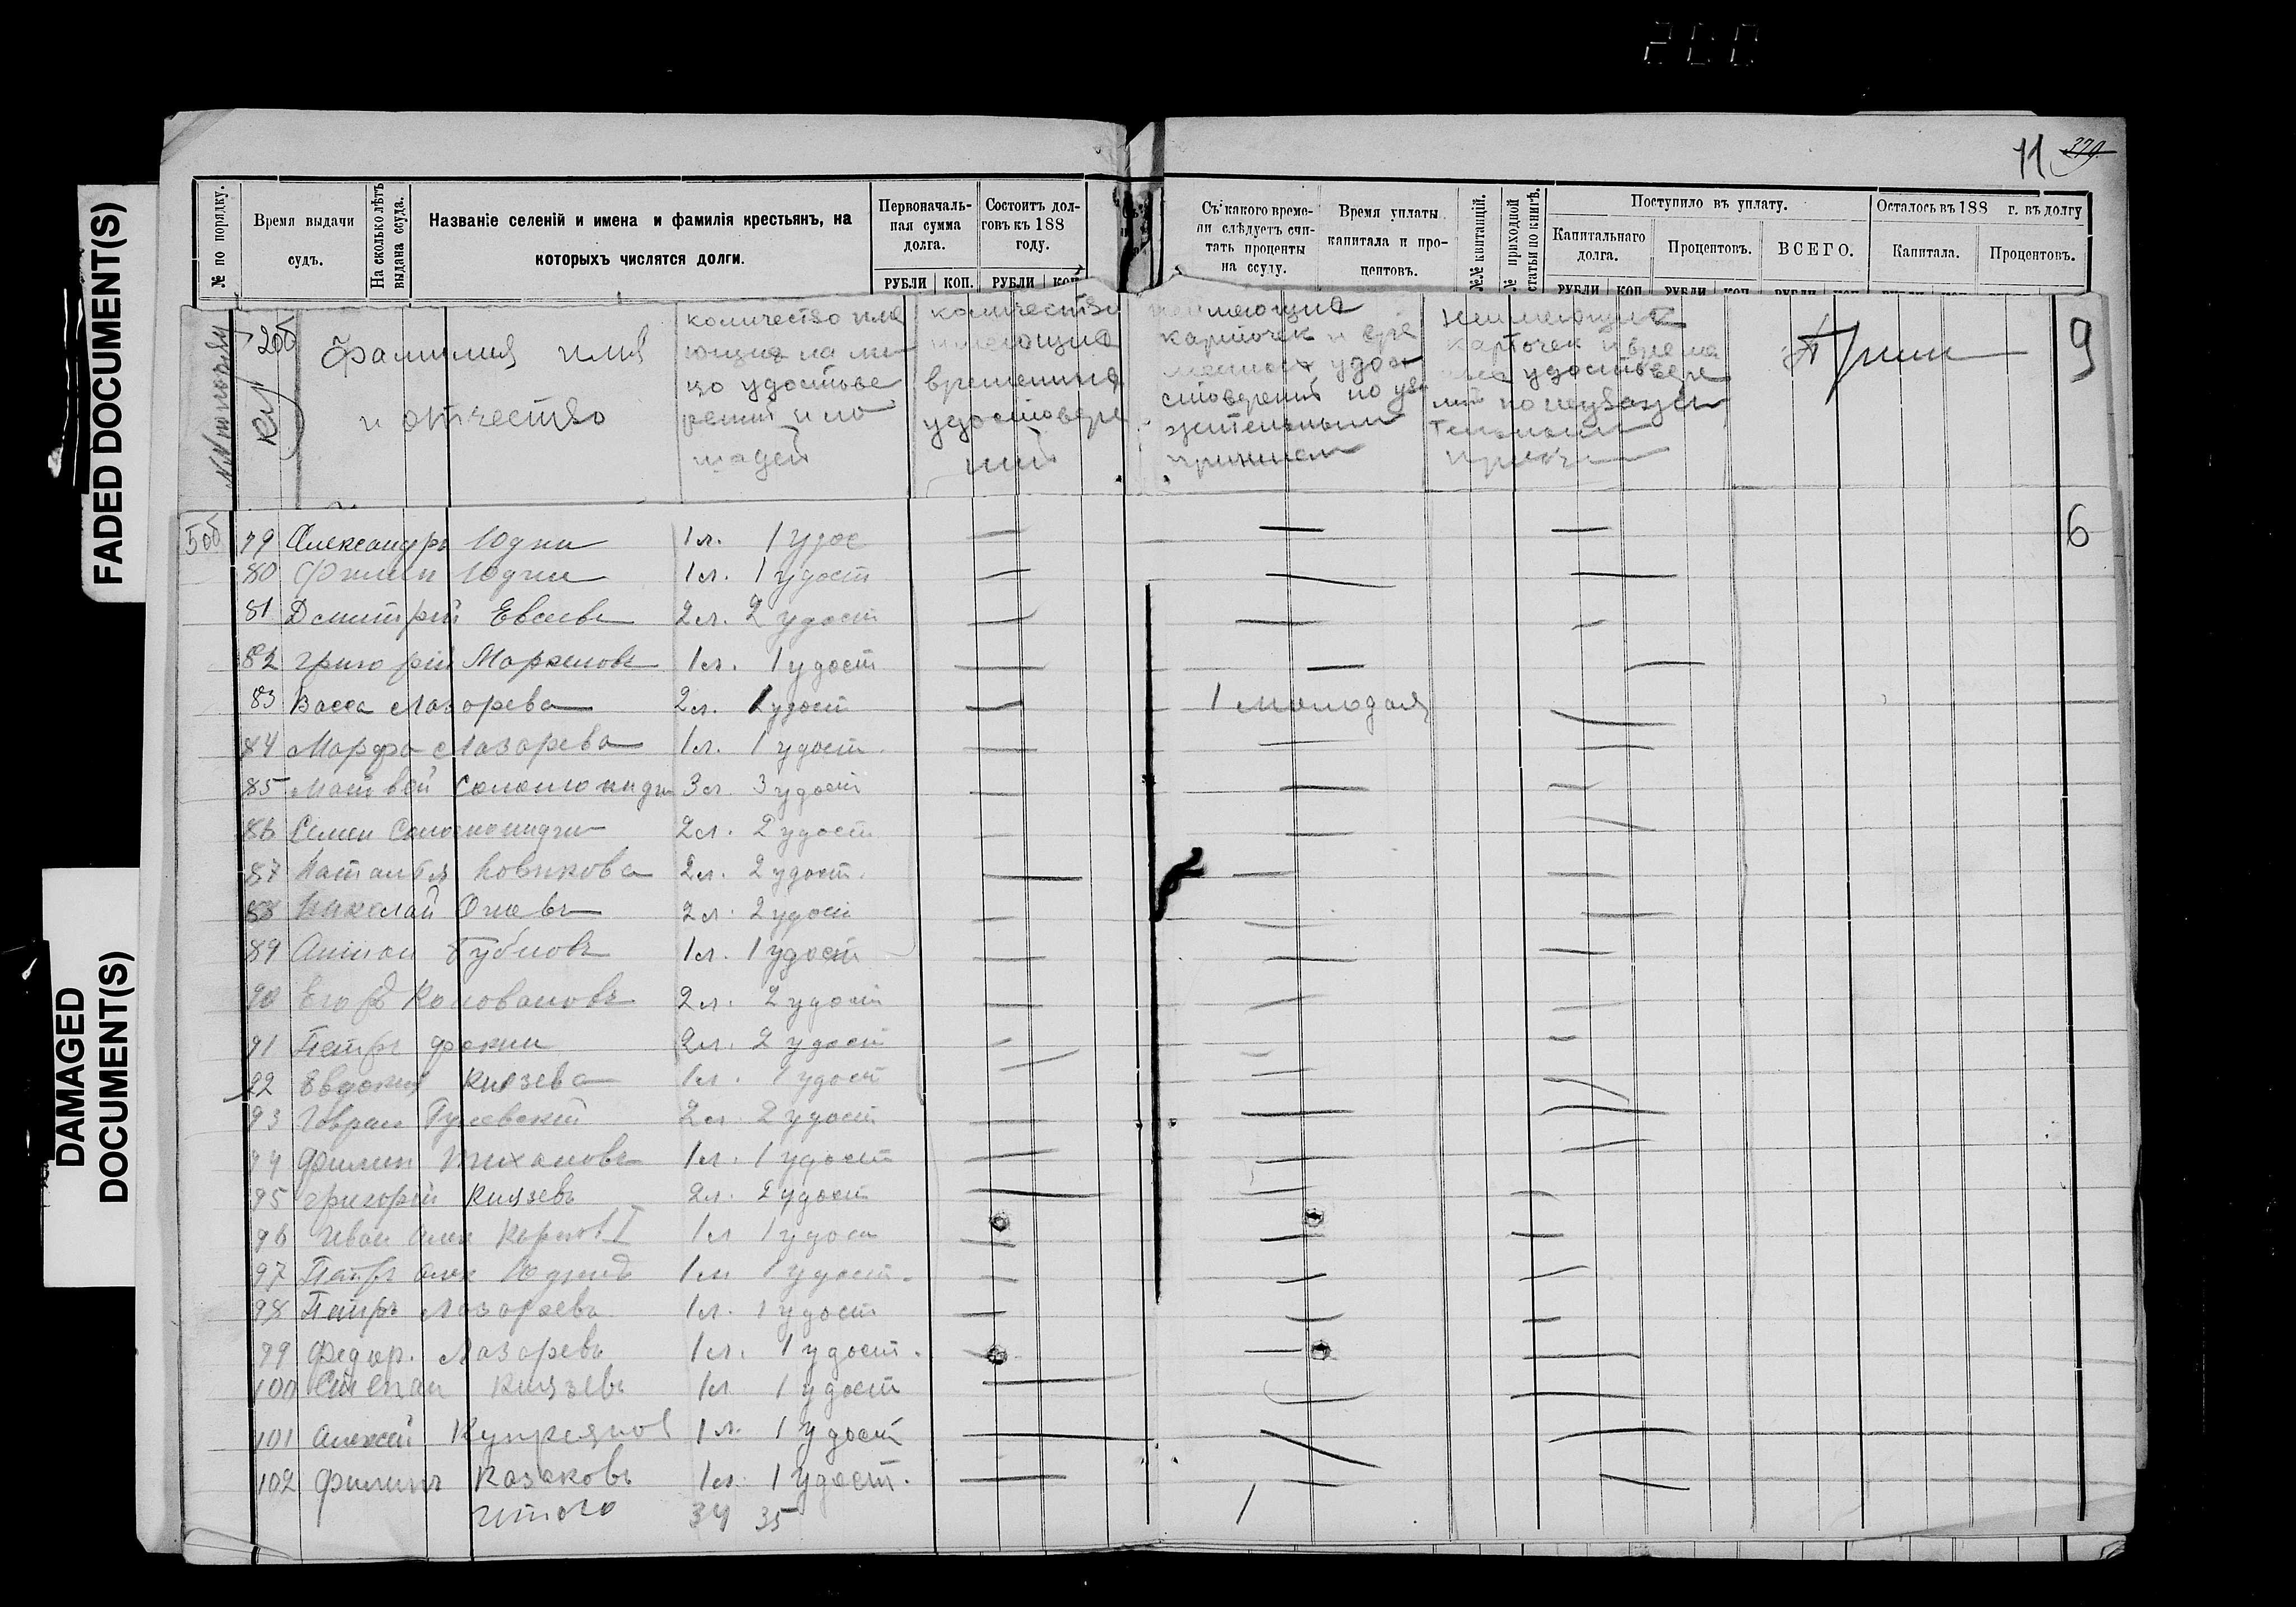 200
11 379.
FADED DOCUMENT(S)
DAMAGED DOCUMENT(S)
№ по порядку.
Время выдачи судъ.
На сколько лѣтъ выдана ссуда.
Названіе селеній и имена и фамилія крестьянъ, на
которыхъ числятся долги.
Первоначаль-
ная сумма
долга.
РУБЛИ КОП.
Состоитъ дол-
говъ къ 188
году.
РУБЛИ КОП
Съ какого време-
ни слѣдуетъ счи-
тать проценты
на ссуду.
Время уплаты
капитала и про-
центовъ.
№№ квитанцій.
№ приходной
статьи по книгѣ.
Поступило въ уплату.
Капитальнаго
долга.
Процентовъ.
ВСЕГО.
Осталось въ 188 г. въ долгу
Капитала.
Процентовъ.
РУБЛИ КОП РУБЛИ КОП РУБЛИ КОП
Фамилия имя
и отчество
количество име
ющих на ли
цо удостове
рений и ло
шадей
количество
имеющих
временных
удостовере
ний
неимеющих
карточек и вре
менных удо
стоверений по ува
жительным
причинам
неимеющих
карточек и време
удостовере
ний по неуважи
тельным
Прим
9
5об 79 Александръ Юдин 1 л. 1 удос
6
80 Филип Юдин 1 л. 1 удост
81 Дмитрий Евсевъ 2 л. 2 удост
82 Григорий Мартиновъ 1 л. 1 удост
83 Васса Лазорева 2 л. 1 удост 1 молодая
84 Марфа Лазарева 1 л. 1 удост.
85 Матвей Соломонидин 3 л. 3 удост
86 Семен Соломонидин 2 л. 2 удост
87 Наталья Новикова 2 л. 2 удост.
88 Николай 2 л. 2 удост
89 Антон Бубновъ 1 л. 1 удост
90 Егоръ Коловановъ 2 л. 2 удост
91 Петръ Фокин 2 л. 2 удост
92 Евдокия Князева 1 л. 1 удост
93 2 л. 2 удост
94 Филип Тихановъ 1 л. 1 удост
95 Григорий Князевъ 2 л. 2 удост
96 Иван Алек I 1 л 1 удост
97 Петръ Алек Юдинъ 1 л 1 удост.
98 Петръ Лазаревъ 1 л. 1 удост
99 Федор. Лазоревъ 1 л. 1 удост.
100 Степан Князевъ 1 л 1 удост
101 Алексей Купреянов 1 л. 1 удост
102 Филипъ Казаковъ 1 л. 1 удост.
Итого 34 35 1